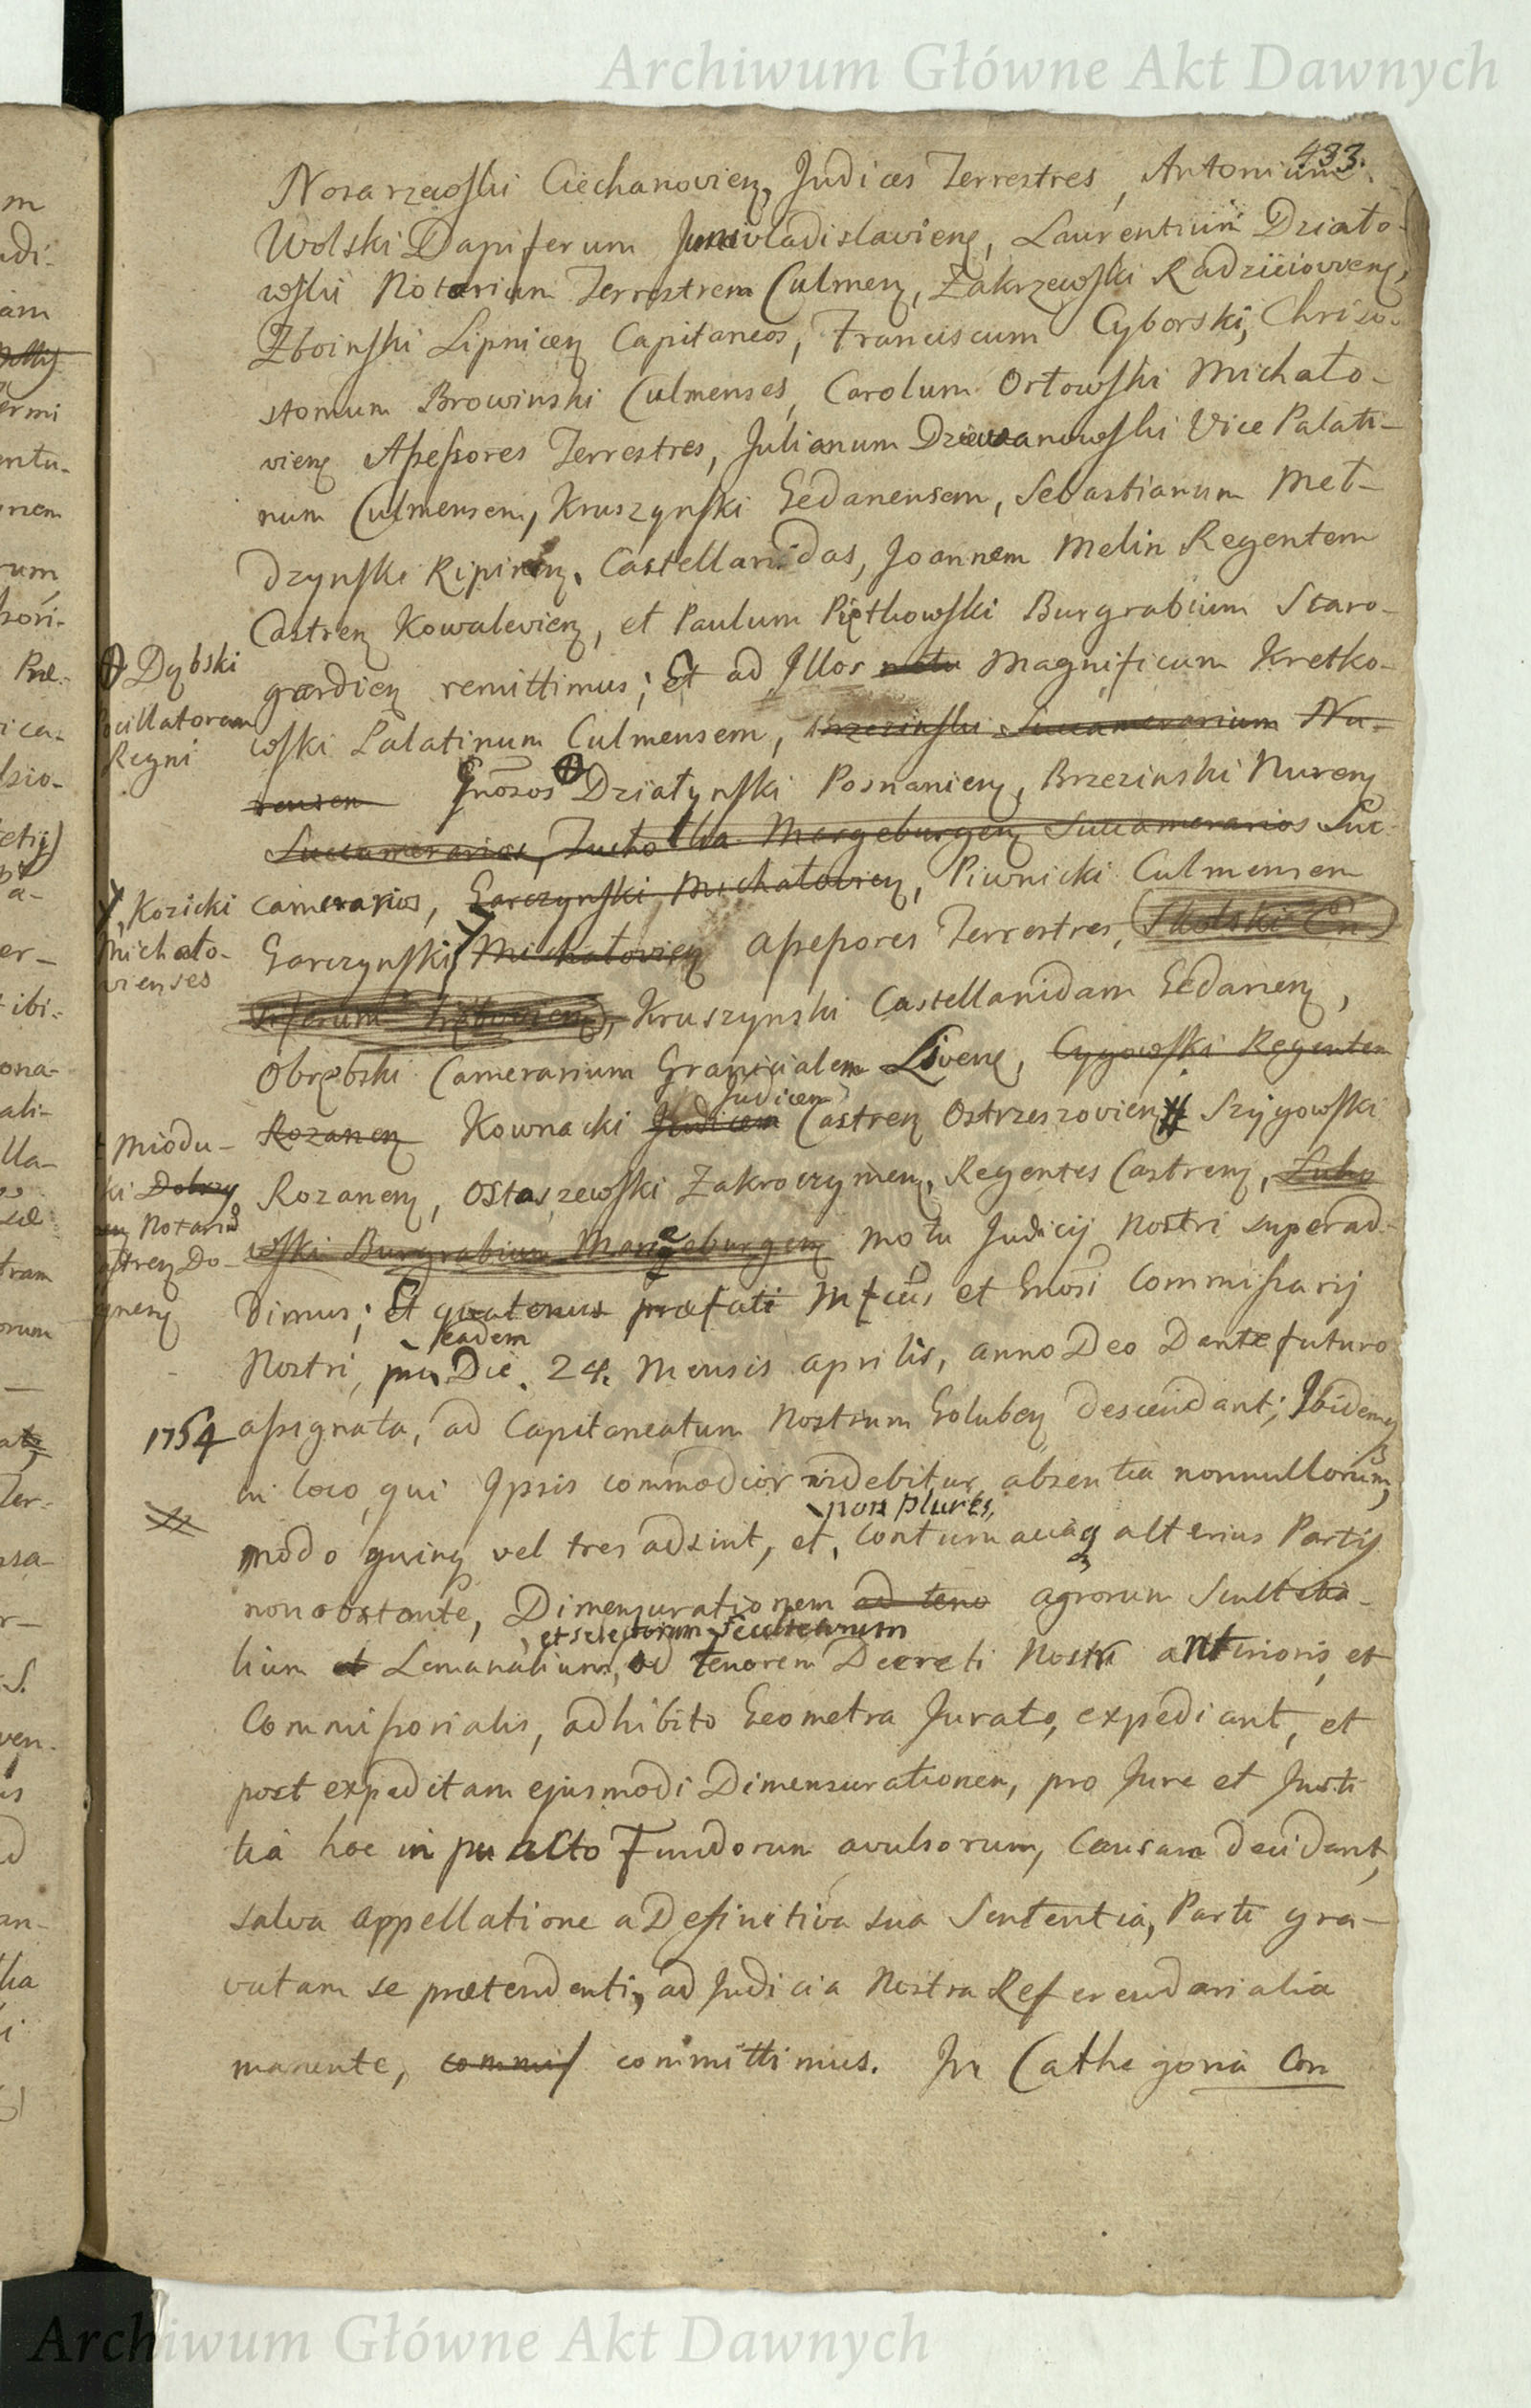 Archiwum Główne Akt Dawnych
433.
Nosarzewski Ciechanovien, Judices Terrestres, Antonium
Wolski Dapiferum Junivladislavien, Laurentium Działo-
wski Notarium Terrestrem Culmen, Zakrzewski Radziiovien,
Zboinski Lipnicen Capitaneos, Franciscum Cyborski, Chriso-
stomum Browinski Culmenses, Carolum Orłowski Michało-
vien Assessores Terrestres, Julianum Dziewanowski Vice Palati-
num Culmensem, Kruszynski Gedanensem, Sebastianum Meł-
dzynski Ripinen. Castellanidas, Joannem Melin Regentem
Castren Kowalevien, et Paulum Piętkowski Burgrabium Staro-
gardien remittimus; Et ad Illos motu Magnificum Kretko-
wski Palatinum Culmensem, Brzezinski Succamerarium Nu-
rensem Gnosos Działynski Posnanien, Brzezinski Nuren
Succamerarios, Tucholka Margeburgen Succamerarios Suc-
camerarios, Garczynski Michałovien, Piwnicki Culmensem
Garczynski Michałovien Assessores Terrestres,
Kruszynski Castellanidam Gedanen,
Obrębski Camerarium Granicialem Liven, Cygowski Regentem
Rozanen Kownacki Judicem Judicem Castren Ostrzeszovien # Szygowski
Rozanen, Ostaszewski Zakroczymen, Regentes Castren,
wski Burgrabium Margeburgen motu Judicij Nostri superad-
dimus; Et quatenus præfati Mfcus et Gnosi Commissarij
Nostri, pro eadem Die 24. Mensis Aprilis, anno Deo Dante futuro
1754 assignata, ad Capitaneatum Nostrum Goluben descendant; Ibidemq
in loco, qui Ipsis commodior videbitur, absentia nonnullorum,
modo quinq vel tres adsint, et, non plures, contumaciaq alterius Partis
non obstante, Dimensurationem ad teno agrorum Scultetia-
lium et Lemanalium, et selectorum Scultetiarum ad tenorem Decreti Nostri anterioris et
Commissorialis, adhibito Geometra Jurato, expediant, et
post expeditam ejusmodi Dimensurationem, pro Jure et Justi
tia hoc in puncto Fundorum avulsorum, Causam decidant,
salva appellatione a Definitiva sua Sententia, Parti gra-
vatam se prætendenti, ad Judicia Nostra Referendarialia
manente, commis committimus. In Cathegoria Con
Dąbski
Pocillatorem
Regni
Kozicki
Michało-
vienses
Miodu-
ki Dobrzy
Notariū
astren Do-
Archiwum Główne Akt Dawnych